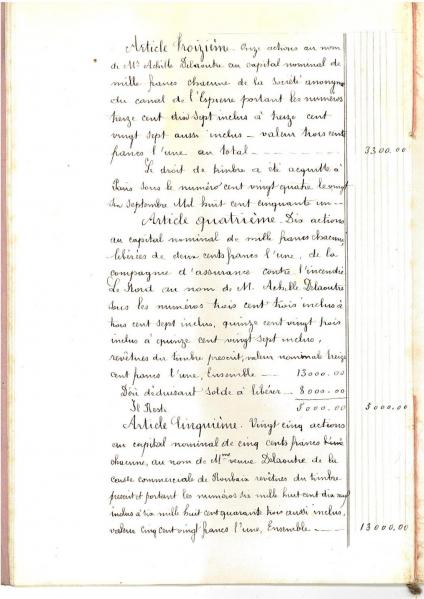 Article Troizième. Onze actions au nom
de Mr Achille Delaoutre au capital nominal de
mille francs chacune de la Société anonyme
du canal de l'Espierre portant les numéros
treize cent dix sept inclus à treize cent
vingt sept aussi inclus — valeur trois cents
francs l'une au total — 3300.00
Le droit de timbre a été acquitté à
Paris sous le numéro cent vingt quatre le vingt
Septembre Mil huit cent cinquante un —
Article quatrième. Dix actions
au capital nominal de mille francs chacune
libérées de deux cents francs l'une, de la
compagnie d'assurance contre l'incendie
Le Nord au nom de M. Achille Delaoutre
sous les numéros trois cent trois inclus à
trois cent sept inclus, quinze cent vingt trois
inclus à quinze cent vingt sept inclus,
revêtues du timbre prescrit, valeur nominale treize
cent francs l'une, Ensemble — 13000.00
Doù déduisant solde à libérer — 8000.00
Il Reste 5000.00 5000.00
Article Cinquième. Vingt cinq actions
au capital nominal de cinq cents francs
chacune, au nom de Mme veuve Delaoutre de la
caisse commerciale de Roubaix revêtues du timbre
prescrit et portant les numéros six mille huit cent dix neuf
inclus à six mille huit cent quarante trois aussi inclus,
valeur cinq cent vingt francs l'une, Ensemble — 13000.00